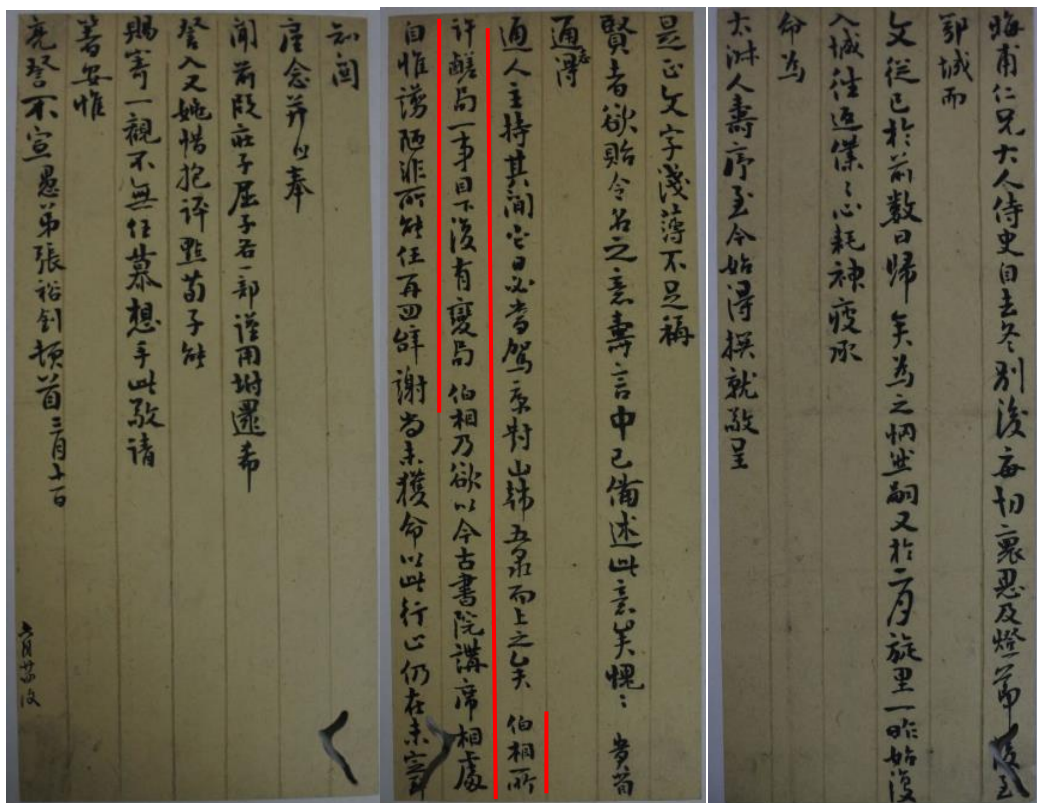 晦甫仁兄大人侍史自去冬別後每切衷思及燈節後至
鄂城而
文從已於前數日歸矣為之惘然嗣又於二月旋里一昨始復
入城往返僕〻心耗神疲承
命為
太淑人壽序至今始得撰就敬呈
是正文字淺薄不足稱
賢者欲貽令名之意壽言中已備述此意矣愧〻 貴省
通志得
通人主持其間它日必當駕康對山韓五泉而上之矣 伯相所
許鹺局一事目下復有變局伯相乃欲以今古書院講席相處
自惟譾陋非所能任再四辭謝尚未獲命以此行止仍在未定耳
知關
廑念并以奉
聞前假莊子屈子各一部謹用坿還希
詧入又姚惜抱評點荀子能
賜寄一觀不無任慕想手此敬請
箸安惟
亮詧不宣愚弟張裕釗頓首 三月十一日